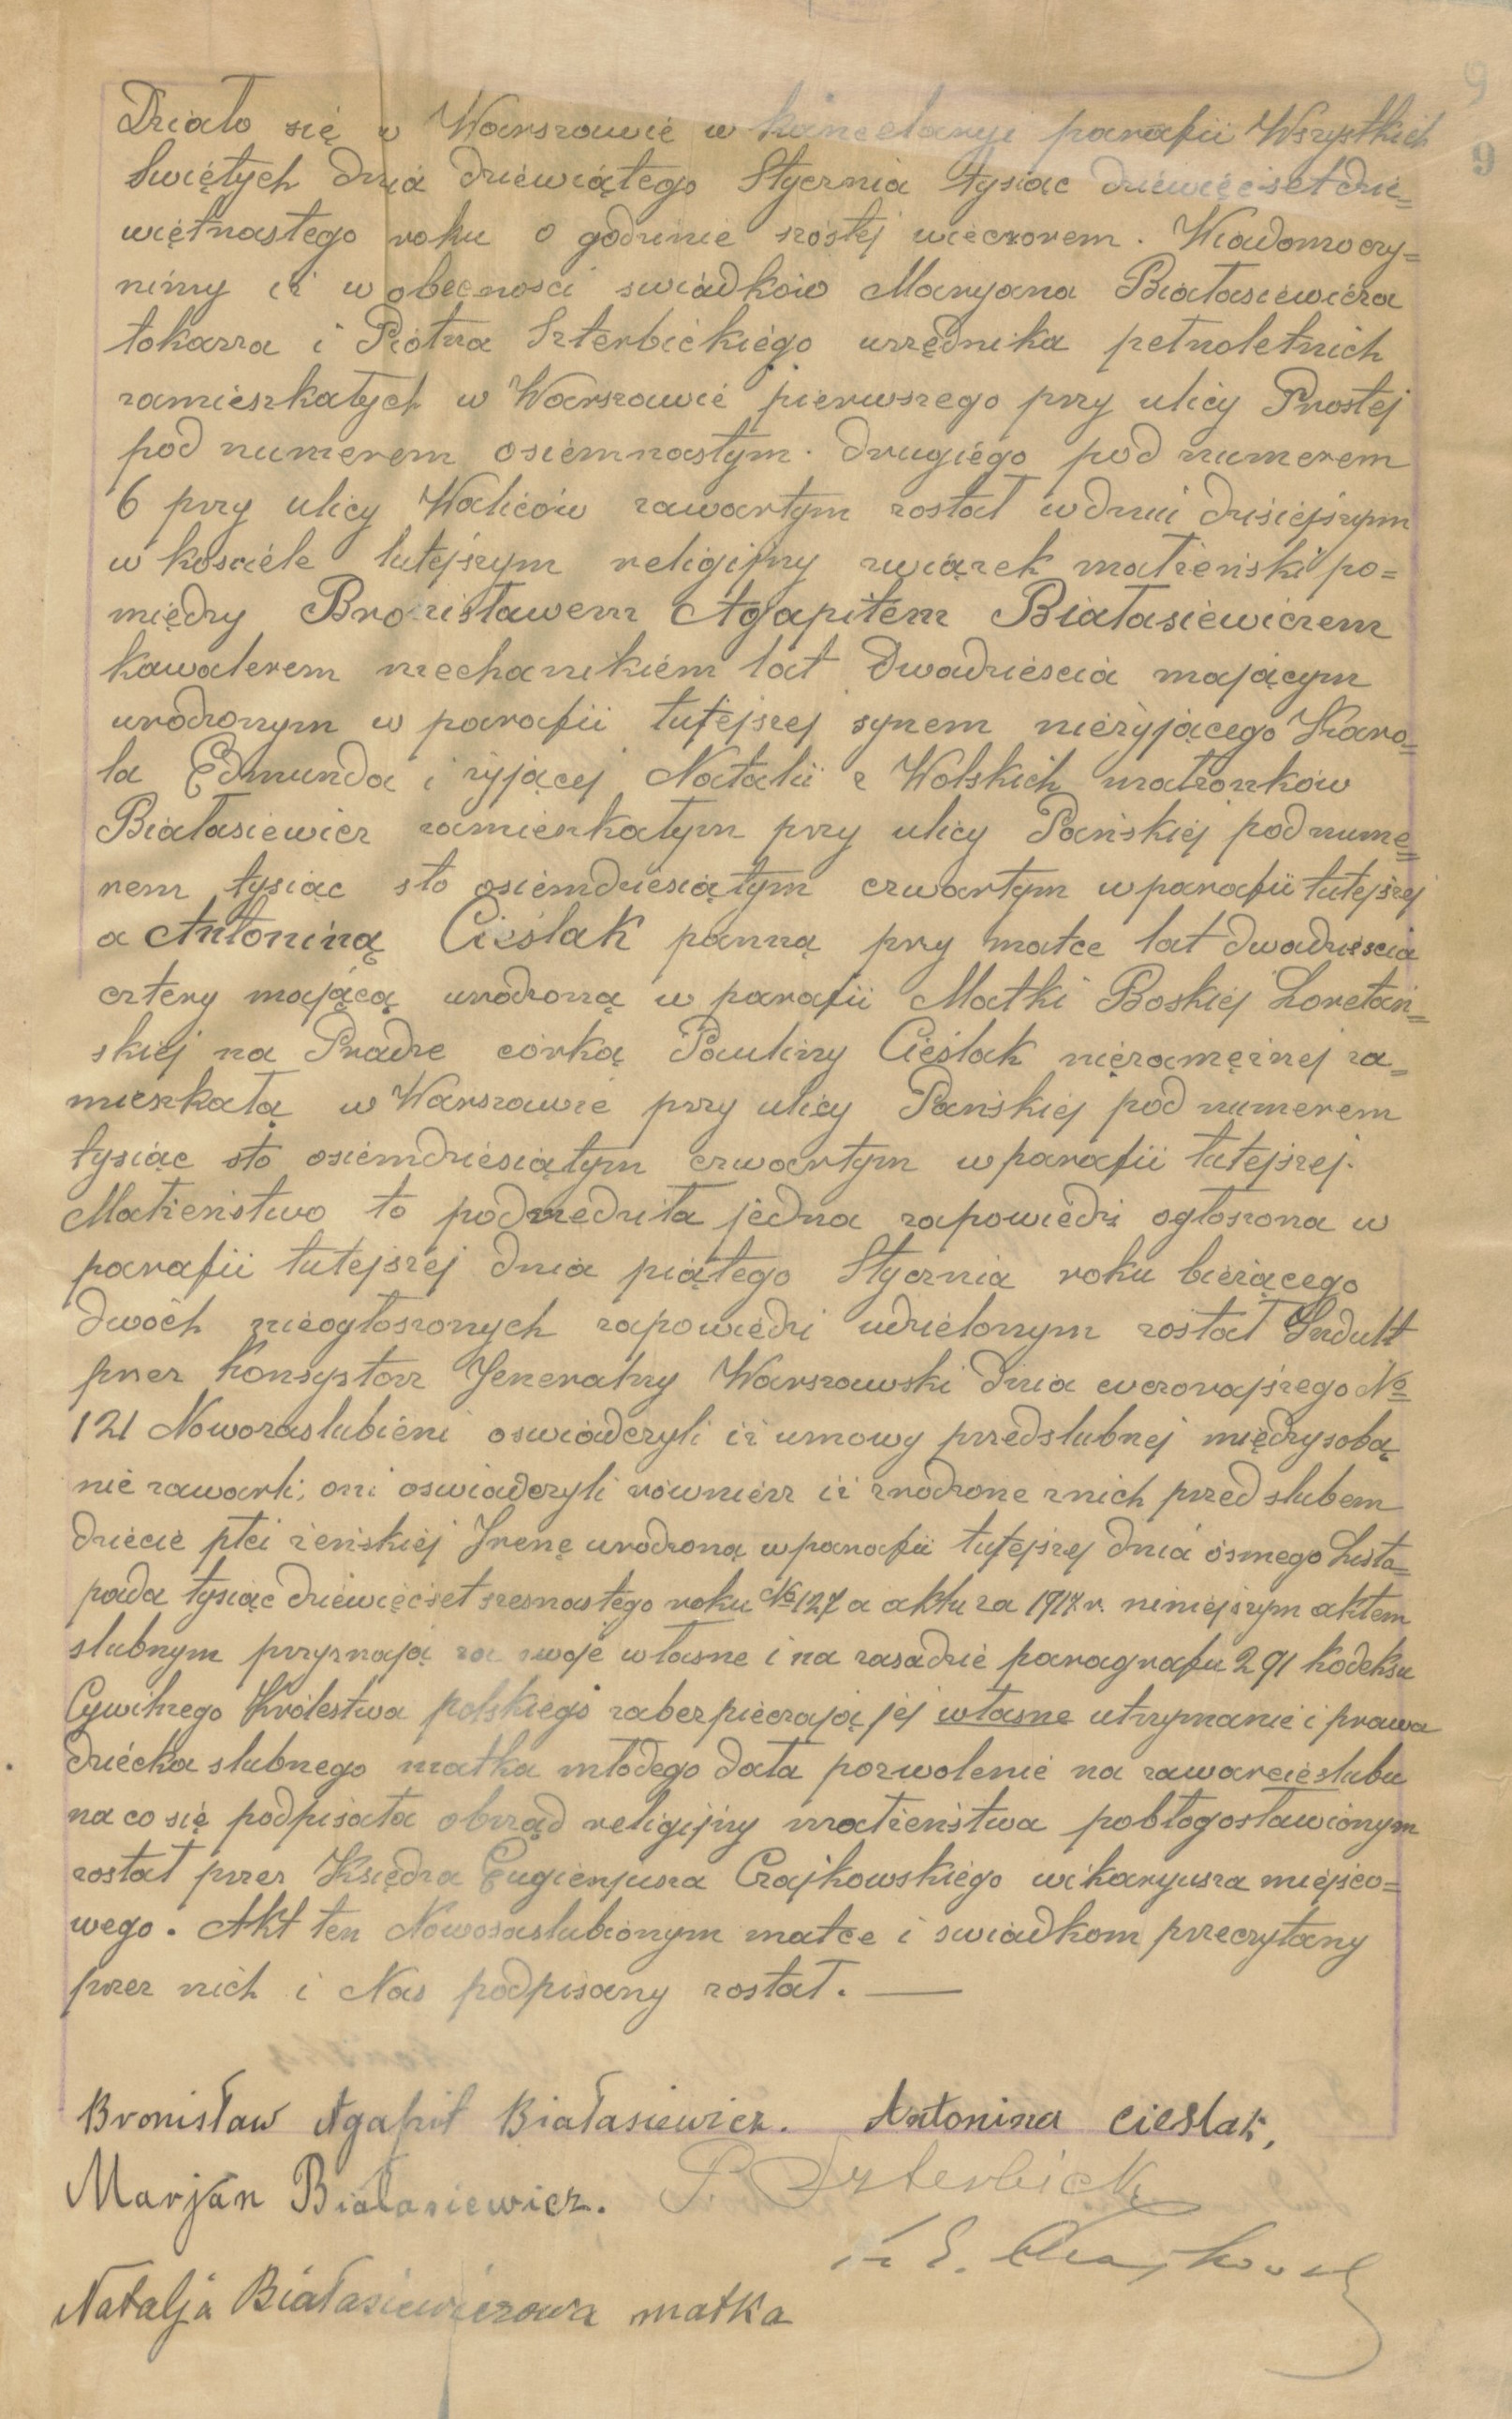 9
9
Działo się w Warszawie w kancelaryi parafii Wszystkich
Swiętych dnia dziewiątego Stycznia tysiac dziewięcset dzie=
więtnastego roku o godzinie szóstej wieczorem. Wiadomo czy=
nimy iż w obecnosci swiadków Maryana Białasiewicza
tokarza i Piotra Szterbickiego urzędnika pełnoletnich
zamieszkałych w Warszawie pierwszego przy ulicy Prostej
pod numerem osiemnastym. drugiégo pod numerem
6 przy ulicy Waliców zawartym został w dniu dzisiejszym
w kosciele tutejszym religijny związek małżeński po=
między Bronisławem Agapitem Białasiewiczem
kawalerem mechanikiém lat dwadziescia mającym
urodzonym w parafii tutejszej synem nieżyjącego Karo=
la Edmunda i żyjącej Natalii z Wolskich małżonków
Białasiewicz zamieszkałym przy ulicy Pańskiej pod nume=
rem tysiąc sto osiemdziesiątym czwartym w parafii tutejszej
a Antoniną Cieślak panną przy matce lat dwadziescia
cztery mającą urodzoną w parafii Matki Boskiej Loretań=
skiej na Pradze córką Pauliny Cieślak niezamężnej za=
mieszkałą w Warszawie przy ulicy Pańskiej pod numerem
tysiąc sto osiemdziesiątym czwartym w parafii tutejszej.
Małżeństwo to podrzedziła jedna zapowiedź ogłoszona w
parafii tutejszej dnia piątego Stycznia roku bieżącego
dwóch nieogłoszonych zapowiedzi udzielonym został Indult
przez Konsystorz Jeneralny Warszawski dnia wczorajszego No
121 Nowozaslubieni oswiadczyli iż umowy przedslubnej między sobą
nie zawarli; oni oswiadczyli równierz iż zrodzone z nich przed slubem
dziecie płci żeńskiej Irenę urodzoną w parafii tutejszej dnia ósmego Listo=
pada tysiąc dziewięcset szesnastego roku No 127 a aktu za 1917 r. niniejszym aktem
slubnym przyznają za swoje własne i na zasadzie paragrafu 291 Kodeksu
Cywilnego Królestwa polskiego zabezpieczają jej własne utrzymanie i prawa
dziecka slubnego matka młodego dała pozwolenie na zawarcie slubu
na co się podpisała obrząd religijny małżeństwa pobłogosławionym
został przez Księdza Eugienjusza Czajkowskiégo wikaryusza miejsco=
wego. Akt ten Nowozaslubionym matce i swiadkom przeczytany
przez nich i Nas podpisany został.
Bronisław Agapit Białasiewicz. Antonina Cieslak,
Marjan Białasiewicz. P. Szterbicki
Ks E. Czajkowski
Natalja Białasiewiczowa matka